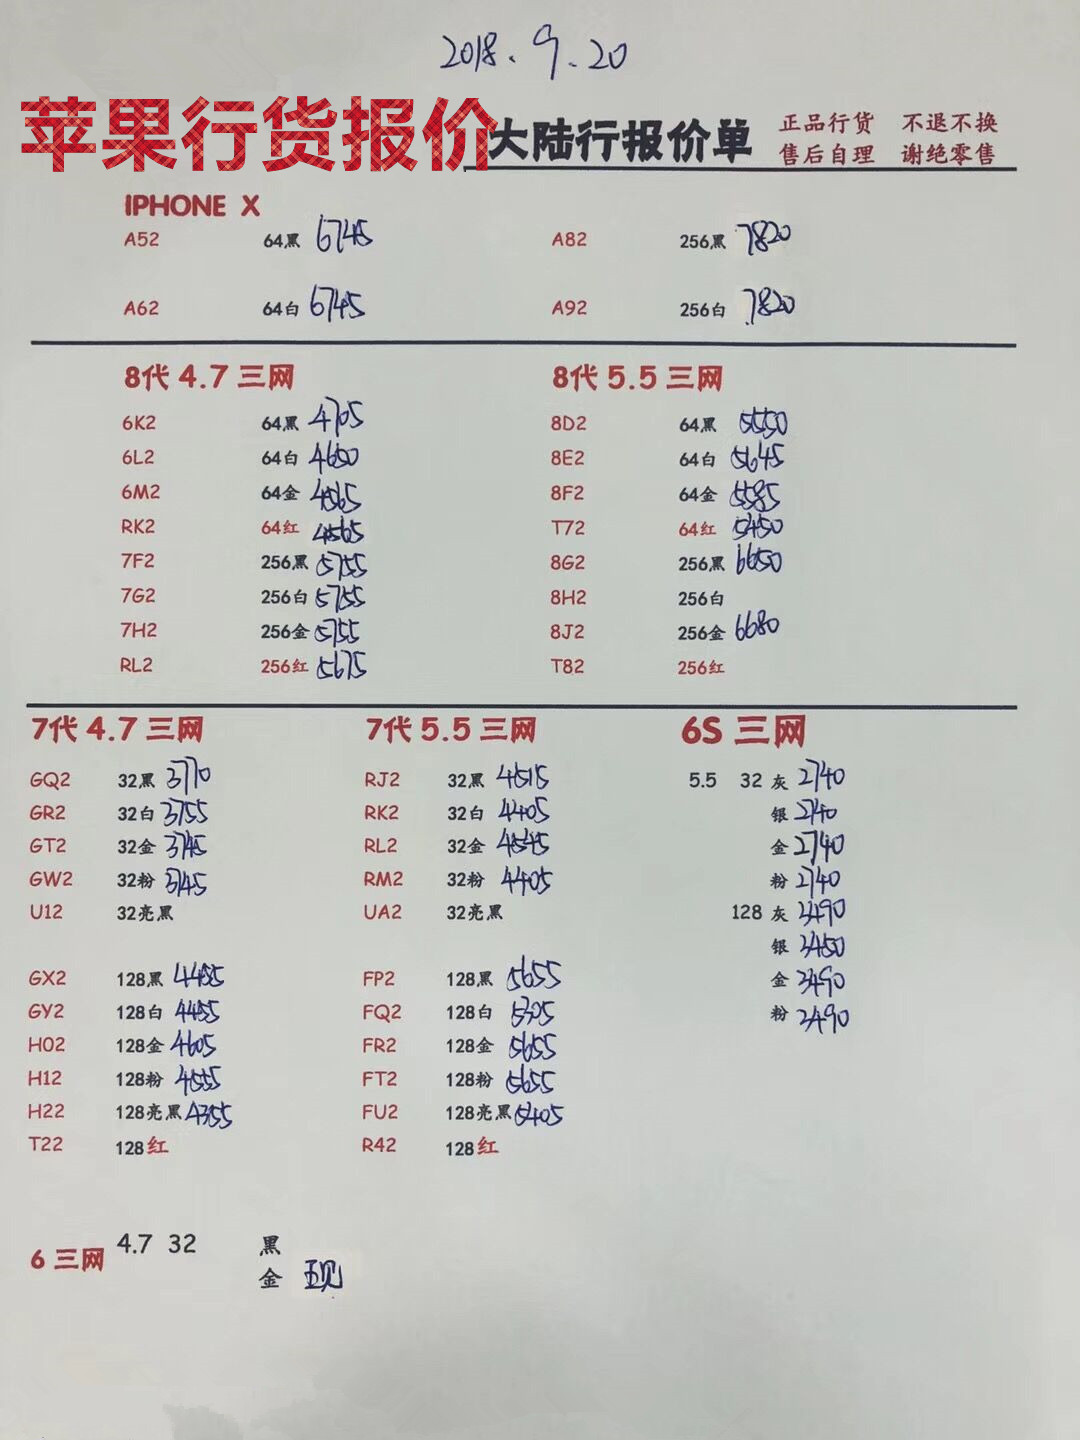 2018.9.20
苹果行货报价 大陆行报价单 正品行货 不退不换
售后自理 谢绝零售
IPHONE X
A52 64黑 6745 A82 256黑 7820
A62 64白 6745 A92 256白 7820
8代 4.7 三网 8代 5.5 三网
6K2 64黑 4705 8D2 64黑 5550
6L2 64白 4650 8E2 64白 5645
6M2 64金 4565 8F2 64金 5585
RK2 64红 4565 T72 64红 5450
7F2 256黑 5755 8G2 256黑 6650
7G2 256白 5755 8H2 256白
7H2 256金 5755 8J2 256金 6680
RL2 256红 5675 T82 256红
7代 4.7 三网 7代 5.5 三网 6S 三网
GQ2 32黑 3770 RJ2 32黑 4515 5.5 32 灰 2740
GR2 32白 3755 RK2 32白 4405 银 2740
GT2 32金 3745 RL2 32金 4545 金 2740
GW2 32粉 3745 RM2 32粉 4405 粉 2740
U12 32亮黑 UA2 32亮黑 128 灰 3490
银 3450
GX2 128黑 4485 FP2 128黑 5655 金 3490
GY2 128白 4455 FQ2 128白 5305 粉 3490
H02 128金 4605 FR2 128金 5655
H12 128粉 4555 FT2 128粉 5655
H22 128亮黑 4355 FU2 128亮黑 5405
T22 128红 R42 128红
6 三网 4.7 32 黑
金 现